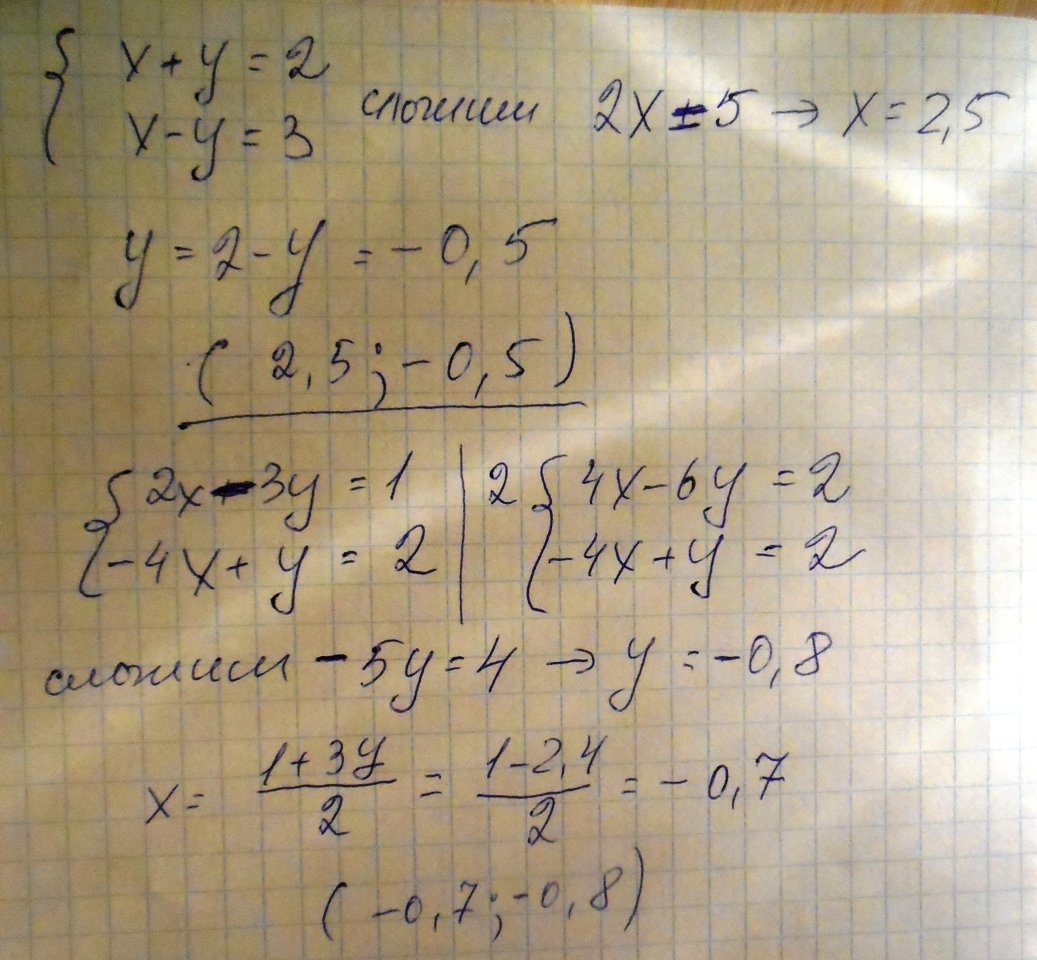 { x + y = 2
x - y = 3 сложим 2x = 5 → x = 2,5
y = 2 - y = -0,5
( 2,5 ; -0,5 )
{ 2x - 3y = 1 | 2 { 4x - 6y = 2
-4x + y = 2 | -4x + y = 2
сложим -5y = 4 → y = -0,8
x = (1 + 3y)/2 = (1 - 2,4)/2 = -0,7
( -0,7 ; -0,8 )